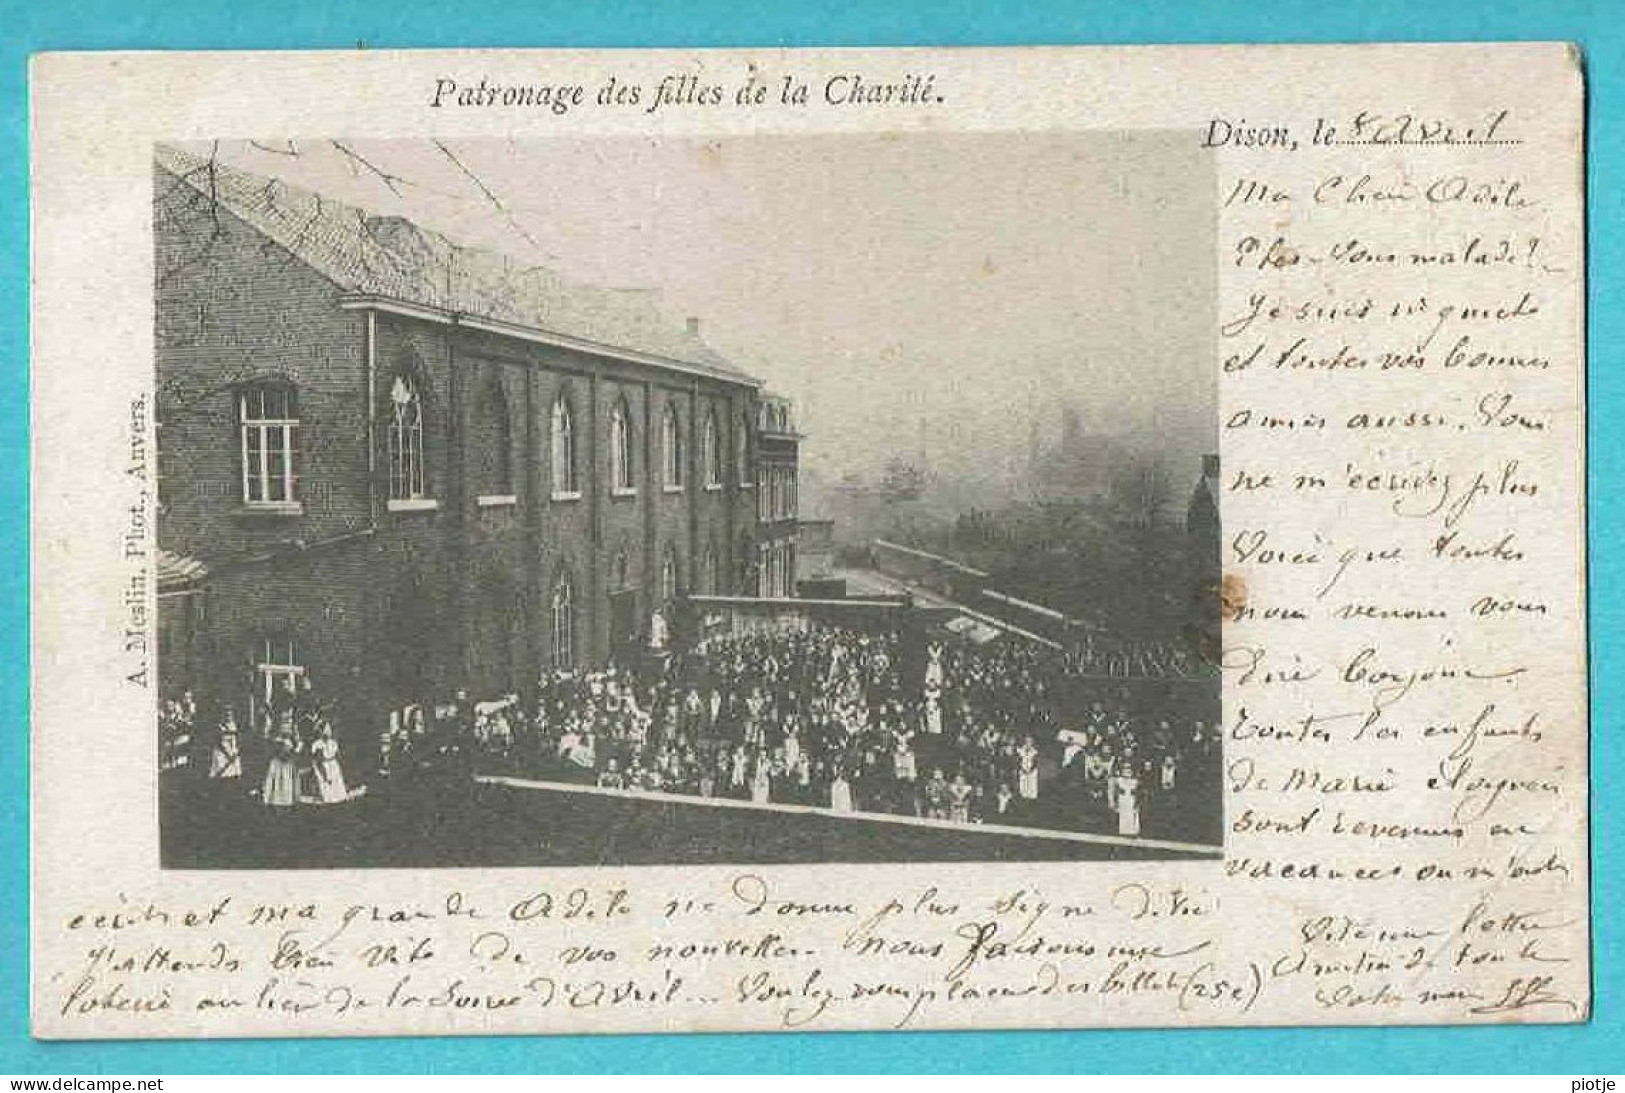 Patronage des filles de la Charité.
Dison, le Avril
Ma Adile
vous malade?
Je suis
et toutes vos bonnes
amies aussi. Vous
ne m'écrivez plus
Voici que toutes
nous venons vous
bonjour.
Toutes les enfants
de Marie
sont revenues en
vacances on m'ont
écrit et ma grande Adile ne donne plus signe de vie
J'attends bien vite de vos nouvelles. Nous faisons une
au lieu de la Soirée d'Avril... Voulez-vous placer des billets (25c)
Vite une lettre
Amitié de toute
Votre
A. Meslin, Phot., Anvers.
www.delcampe.net
piotje